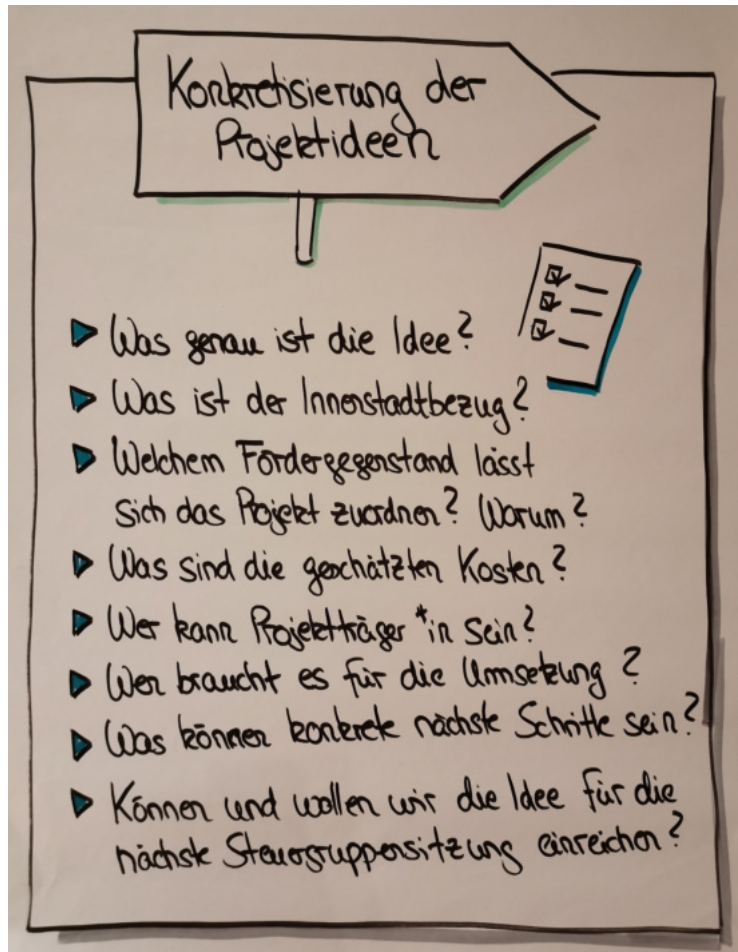 Konkretisierung der
Projektideen
Was genau ist die Idee?
Was ist der Innenstadtbezug?
Welchem Fördergegenstand lässt
sich das Projekt zuordnen? Warum?
Was sind die geschätzten Kosten?
Wer kann Projektträger*in sein?
Wen braucht es für die Umsetzung?
Was können konkrete nächste Schritte sein?
Können und wollen wir die Idee für die
nächste Steuergruppensitzung einreichen?